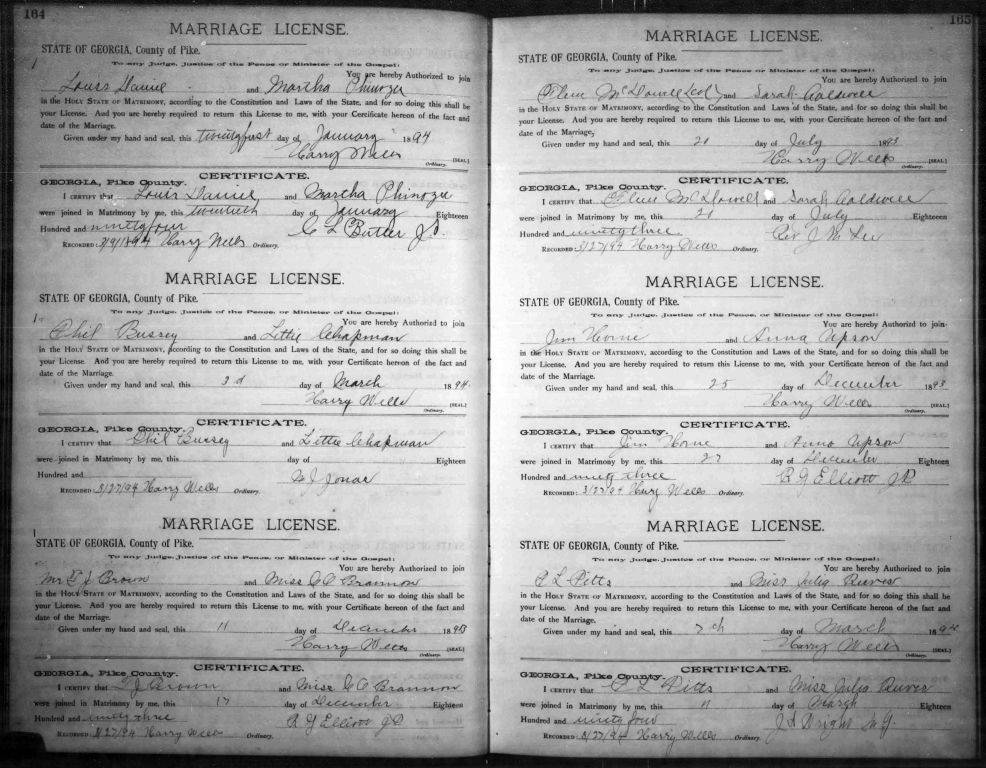 164
MARRIAGE LICENSE.
STATE OF GEORGIA, County of Pike.
To any Judge, Justice of the Peace or Minister of the Gospel:
You are hereby Authorized to join
Louis Daniel and Martha Phinozu
in the HOLY STATE OF MATRIMONY, according to the Constitution and Laws of the State, and for so doing this shall be
your License. And you are hereby required to return this License to me, with your Certificate hereon of the fact and
date of the Marriage.
Given under my hand and seal, this twentyfirst day of January 1894
Harry Wells [SEAL.]
Ordinary.
CERTIFICATE.
GEORGIA, Pike County.
I CERTIFY that Louis Daniel and Martha Phinozu
were joined in Matrimony by me, this twentieth day of January Eighteen
Hundred and ninetyfour C L Butler J.P.
RECORDED: Harry Wells Ordinary.
MARRIAGE LICENSE.
STATE OF GEORGIA, County of Pike.
To any Judge, Justice of the Peace, or Minister of the Gospel:
You are hereby Authorized to join
Phil Bussey and Littie Chapman
in the HOLY STATE OF MATRIMONY, according to the Constitution and Laws of the State, and for so doing this shall be
your License. And you are hereby required to return this License to me, with your Certificate hereon of the fact and
date of the Marriage.
Given under my hand and seal, this 3d day of March 1894
Harry Wells [SEAL.]
Ordinary.
CERTIFICATE.
GEORGIA, Pike County.
I CERTIFY that Phil Bussey and Littie Chapman
were joined in Matrimony by me, this day of Eighteen
Hundred and J Jonas
RECORDED: 3/27/94 Harry Wells Ordinary.
MARRIAGE LICENSE.
STATE OF GEORGIA, County of Pike.
To any Judge, Justice of the Peace, or Minister of the Gospel:
You are hereby Authorized to join
Mr. J Brown and Miss C O Brannon
in the HOLY STATE OF MATRIMONY, according to the Constitution and Laws of the State, and for so doing this shall be
your License. And you are hereby required to return this License to me, with your Certificate hereon of the fact and
date of the Marriage.
Given under my hand and seal, this 11 day of December 1893
Harry Wells [SEAL.]
Ordinary.
CERTIFICATE.
GEORGIA, Pike County.
I CERTIFY that J Brown and Miss C O Brannon
were joined in Matrimony by me, this 17 day of December Eighteen
Hundred and ninety three R G Elliott J P
RECORDED: 3/27/94 Harry Wells Ordinary.
165
MARRIAGE LICENSE.
STATE OF GEORGIA, County of Pike.
To any Judge, Justice of the Peace or Minister of the Gospel:
You are hereby Authorized to join
Clem McDowell (col) and Sarah Caldwell
in the HOLY STATE OF MATRIMONY, according to the Constitution and Laws of the State, and for so doing this shall be
your License. And you are hereby required to return this License to me, with your Certificate hereon of the fact and
date of the Marriage.
Given under my hand and seal, this 20 day of July 1893
Harry Wells [SEAL.]
Ordinary.
CERTIFICATE.
GEORGIA, Pike County.
I CERTIFY that Clem McDowell and Sarah Caldwell
were joined in Matrimony by me, this 21 day of July Eighteen
Hundred and ninety three. Rev J M Lee
RECORDED: 3/27/94 Harry Wells Ordinary.
MARRIAGE LICENSE.
STATE OF GEORGIA, County of Pike.
To any Judge, Justice of the Peace, or Minister of the Gospel:
You are hereby Authorized to join
Jim Horne and Anna Upson
in the HOLY STATE OF MATRIMONY, according to the Constitution and Laws of the State, and for so doing this shall be
your License. And you are hereby required to return this License to me, with your Certificate hereon of the fact and
date of the Marriage.
Given under my hand and seal, this 25 day of December 1893
Harry Wells [SEAL.]
Ordinary.
CERTIFICATE.
GEORGIA, Pike County.
I CERTIFY that Jim Horne and Anna Upson
were joined in Matrimony by me, this 27 day of December Eighteen
Hundred and ninety three R G Elliott J P
RECORDED: 3/27/94 Harry Wells Ordinary.
MARRIAGE LICENSE.
STATE OF GEORGIA, County of Pike.
To any Judge, Justice of the Peace, or Minister of the Gospel:
You are hereby Authorized to join
L Pitts and Miss Julia Reeves
in the HOLY STATE OF MATRIMONY, according to the Constitution and Laws of the State, and for so doing this shall be
your License. And you are hereby required to return this License to me, with your Certificate hereon of the fact and
date of the Marriage.
Given under my hand and seal, this 7th day of March 1894
Harry Wells [SEAL.]
Ordinary.
CERTIFICATE.
GEORGIA, Pike County.
I CERTIFY that L Pitts and Miss Julia Reeves
were joined in Matrimony by me, this 11 day of March Eighteen
Hundred and ninety four J A Wright M.G.
RECORDED: 3/27/94 Harry Wells Ordinary.